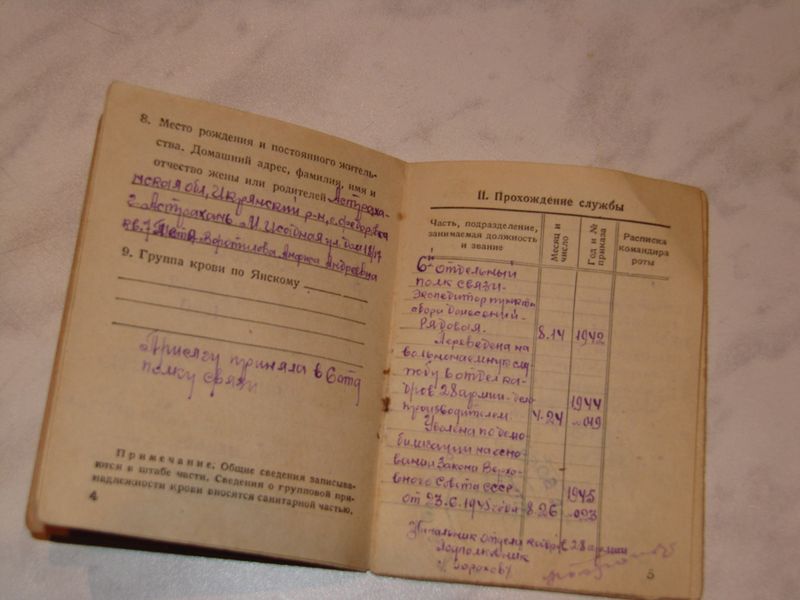 8. Место рождения и постоянного житель-
ства. Домашний адрес, фамилия, имя и
отчество жены или родителей Астраха-
нская обл, Икрянский р-н, с. Федоровка
г. Астрахань, дом 18/17
кв. 7 Воротилова Анфиса Андреевна
9. Группа крови по Янскому
Присягу приняла в 6 отд
полку связи
Примечание. Общие сведения записыва-
ются в штабе части. Сведения о групповой при-
надлежности крови вносятся санитарной частью.
4
II. Прохождение службы
Часть, подразделение,
занимаемая должность
и звание
Месяц и
число
Год и №
приказа
Расписка
командира
роты
6й отдельный
полк связи.
Экспедитор пункта
сбора донесений.
Рядовая. 8.14 1942
Переведена на
вольнонаемную слу
жбу в отдел ка-
дров 28 армии. дело 1944
производителем. 4.24 -049
Уволена по демо
билизации на осно
вании Закона Верхо-
вного Совета СССР 1945
от 23.6.1945 года 8.26 -093
Начальник отдела кадров 28 армии
Подполковник
5